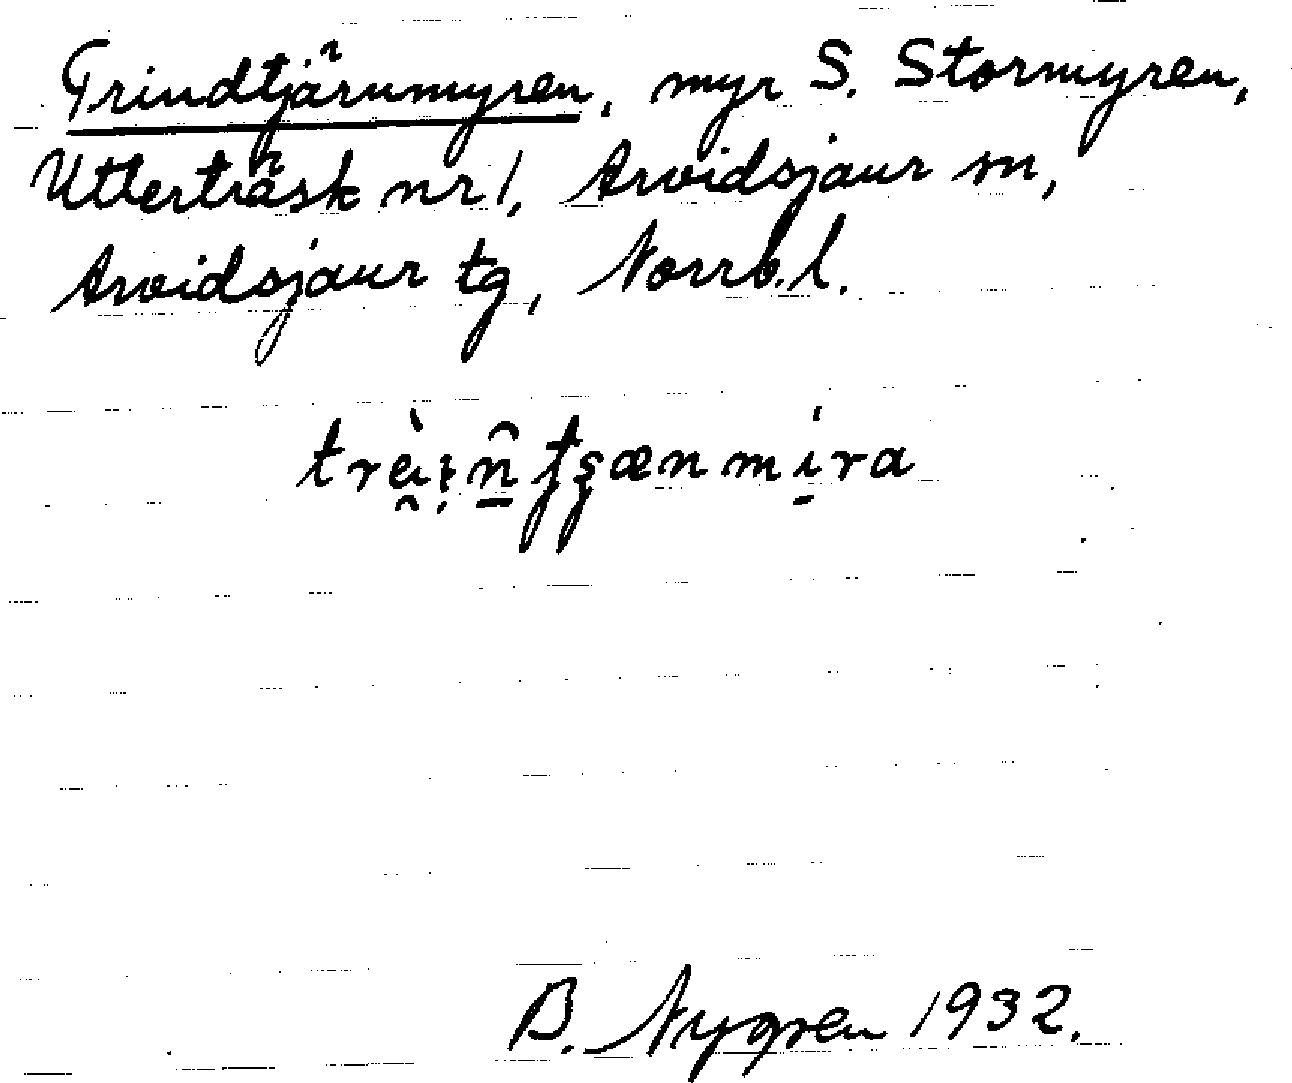 Trindtjärnmyren, myr S. Stormyren,
Utterträsk nr 1, Arvidsjaur sn,
Arvidsjaur tg, Norrb. l.
B. Nygren 1932.